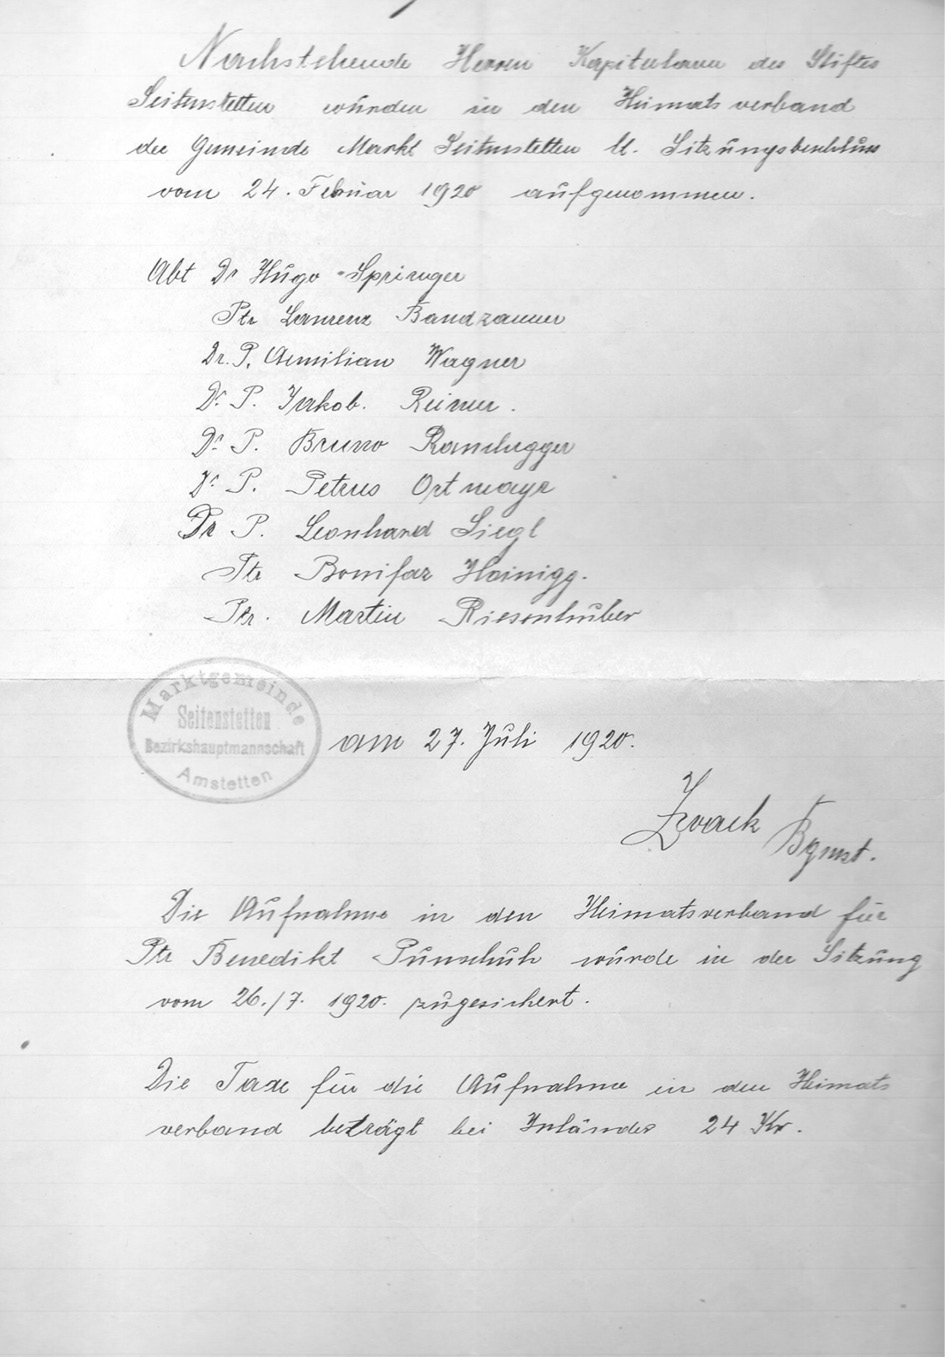 Nachstehende Herren Kapitularen des Stiftes
Seitenstetten wurden in den Heimatsverband
der Gemeinde Markt Seitenstetten lt. Sitzungsbeschluss
vom 24. Februar 1920 aufgenommen.
Abt Dr Hugo Springer
Ptr Laurenz
Dr. P. Aemilian Wagner
Dr. P. Jakob. Reimer.
Dr. P. Bruno Randegger
Dr. P. Petrus Ortmayr
Dr P. Leonhard Siegl
Ptr Bonifaz Hainigg.
Ptr. Martin Riesenhuber
Marktgemeinde
Seitenstetten
Bezirkshauptmannschaft
Amstetten
am 27. Juli 1920.
Zvack Bgmst.
Die Aufnahme in den Heimatsverband für
Ptr Benedikt Punschuh wurde in der Sitzung
vom 26./7. 1920. zugesichert.
Die Taxe für die Aufnahme in den Heimats
verband beträgt bei Inländer 24 Kr.